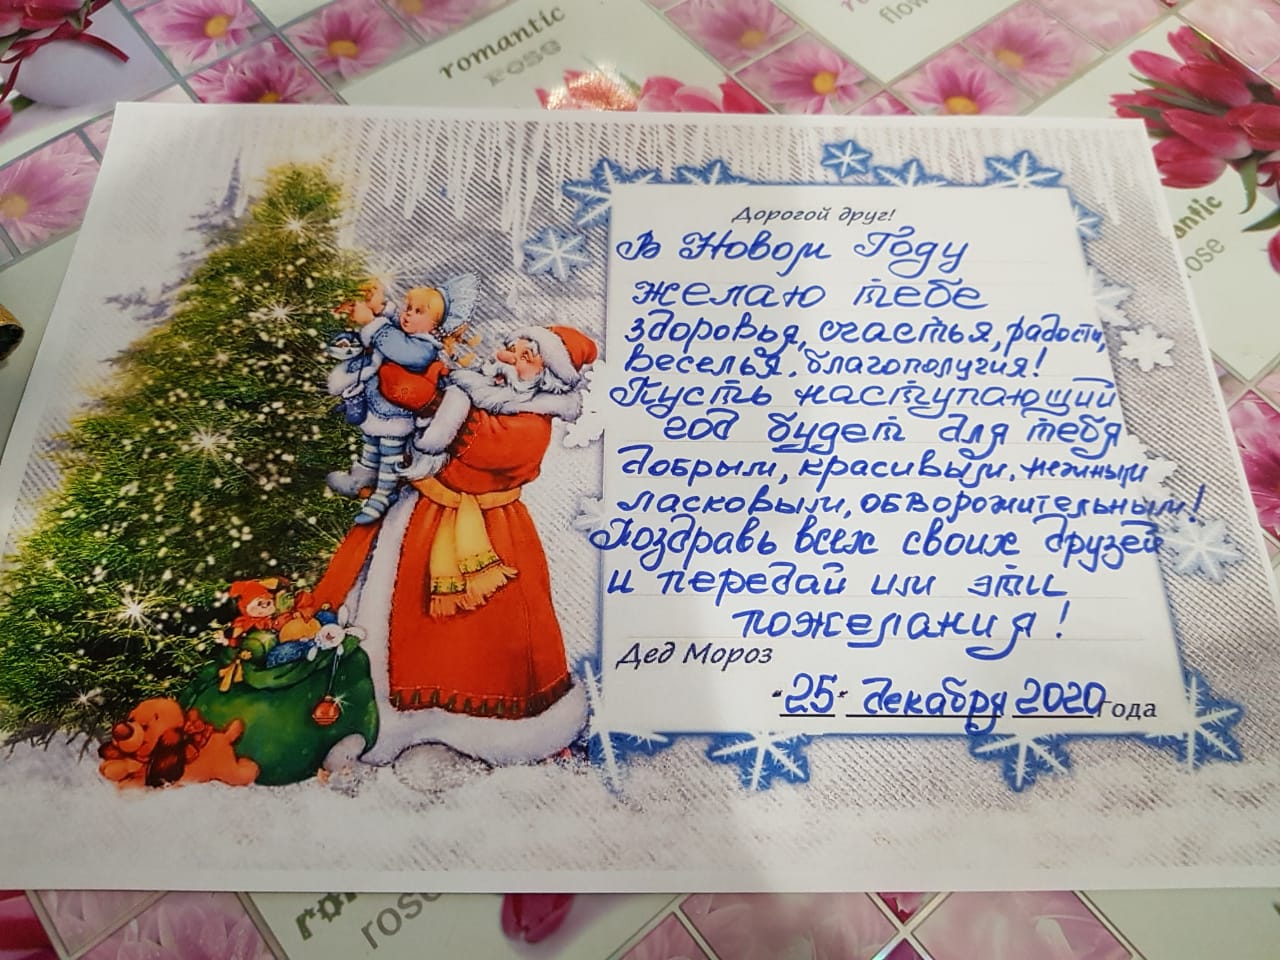 romantic
rose
flow
antic
rose
Дорогой друг!
В Новом Году
желаю тебе
здоровья, счастья, радости,
веселья, благополучия!
Пусть наступающий
год будет для тебя
добрым, красивым, нежным
ласковым, обворожительным!
Поздравь всех своих друзей
и передай им эти
пожелания!
Дед Мороз
"25" декабря 2020 года
rose